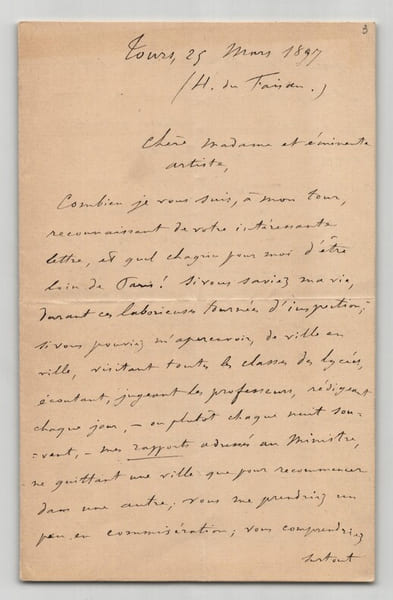 3
Tours, 25 Mars 1897
(H. du Faisan.)
Chère Madame et éminente
artiste,
Combien je vous suis, à mon tour,
reconnaissant de votre intéressante
lettre, et quel chagrin pour moi d'être
loin de Paris! Si vous saviez ma vie,
durant ces laborieuses tournées d'inspection;
si vous pouviez m'apercevoir, de ville en
ville, visitant toutes les classes des lycées,
écoutant, jugeant les professeurs, rédigeant
chaque jour, – ou plutôt chaque nuit sou-
-vent, – mes rapports adressés au Ministre,
ne quittant une ville que pour recommencer
dans une autre; vous me prendriez un
peu en commisération; vous comprendriez
surtout